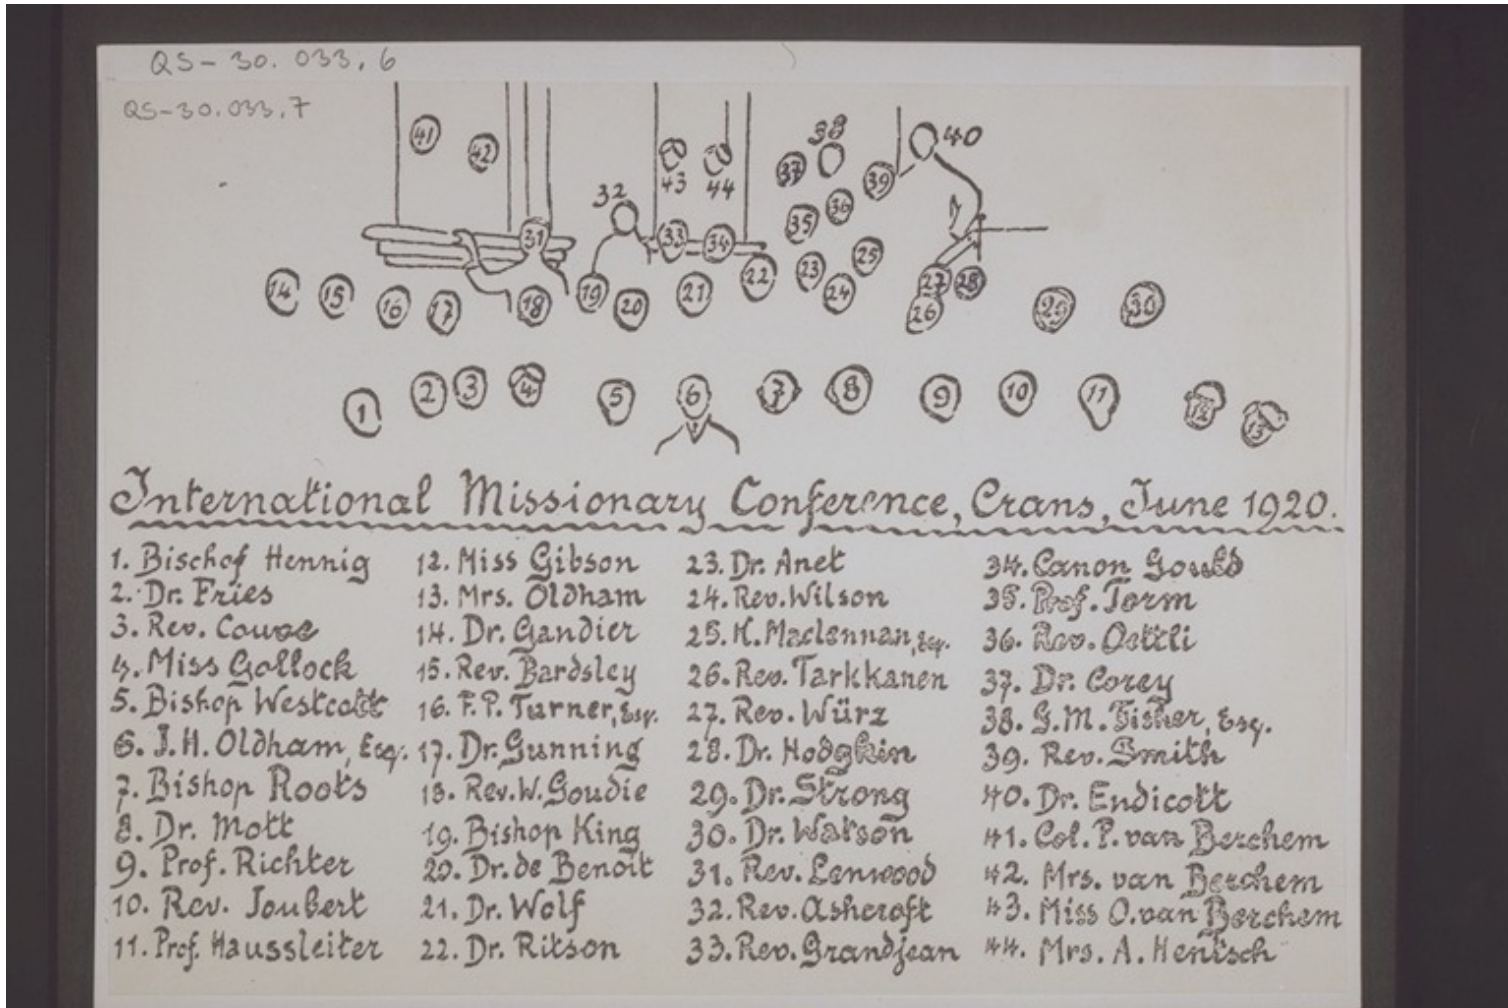 QS-30.033,6
QS-30.033,7
41 42 43 44 37 38 39 40
32 35 36
31 33 34
14 15 16 17 18 19 20 21 22 23 24 25 26 27 28 29 30
1 2 3 4 5 6 7 8 9 10 11 12 13
International Missionary Conference, Crans, June 1920.
1. Bischof Hennig
2. Dr. Fries
3. Rev. Couve
4. Miss Gollock
5. Bishop Westcott
6. J.H. Oldham, Esq.
7. Bishop Roots
8. Dr. Mott
9. Prof. Richter
10. Rev. Joubert
11. Prof. Haussleiter
12. Miss Gibson
13. Mrs. Oldham
14. Dr. Gandier
15. Rev. Bardsley
16. F.P. Turner, Esq.
17. Dr. Gunning
18. Rev. W. Goudie
19. Bishop King
20. Dr. de Benoit
21. Dr. Wolf
22. Dr. Ritson
23. Dr. Anet
24. Rev. Wilson
25. K. Maclennan, Esq.
26. Rev. Tarkkanen
27. Rev. Würz
28. Dr. Hodgkin
29. Dr. Strong
30. Dr. Watson
31. Rev. Lenwood
32. Rev. Ashcroft
33. Rev. Grandjean
34. Canon Gould
35. Prof. Torm
36. Rev. Oettli
37. Dr. Corey
38. G.M. Fisher, Esq.
39. Rev. Smith
40. Dr. Endicott
41. Col. P. van Berchem
42. Mrs. van Berchem
43. Miss O. van Berchem
44. Mrs. A. Hentsch